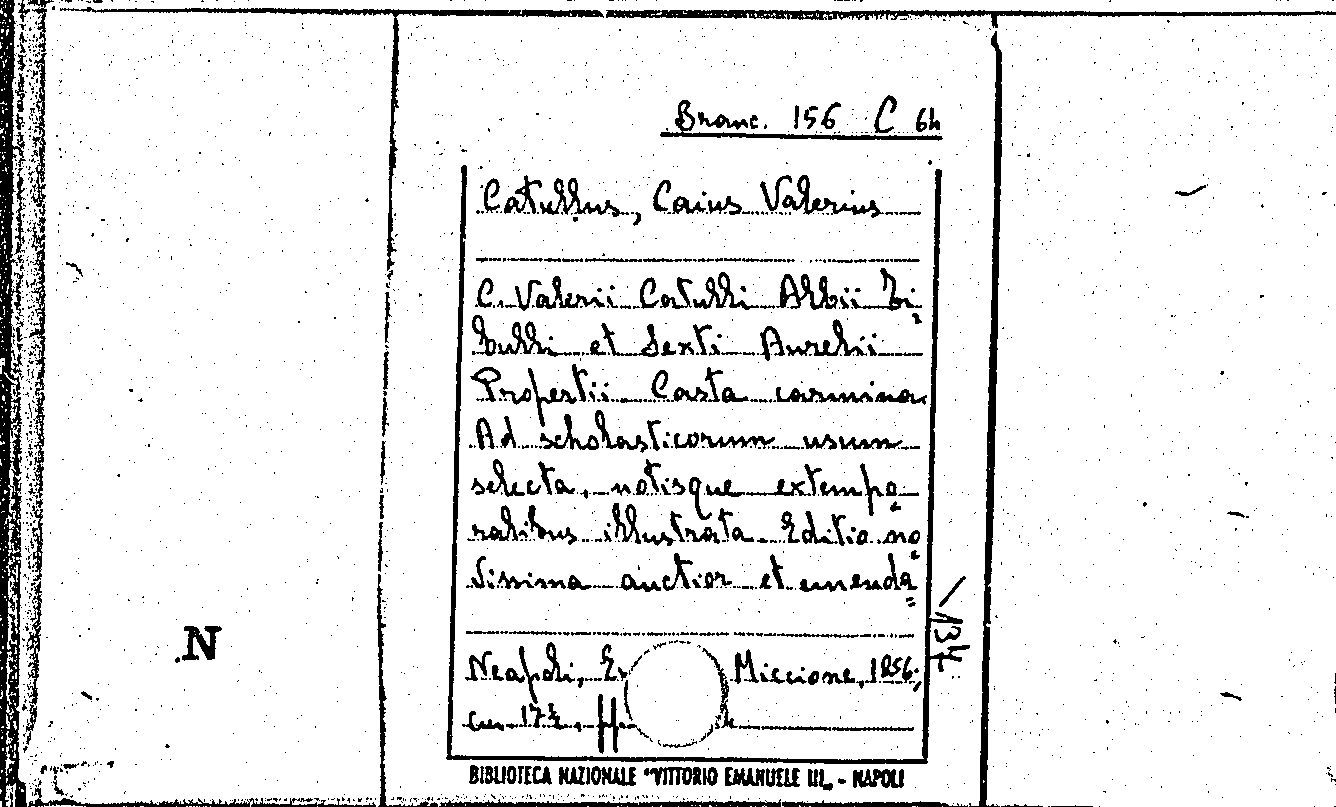 Branc. 156 C 64
Catullus, Caius Valerius
C. Valerii Catulli Albii Ti
bulli et Sexti Aurelii
Propertii Casta carmina
Ad scholasticorum usum
selecta, notisque extempo
ralibus illustrata. Editio no
vissima auctior et emenda
Neapoli, Miccione, 1856;
cm. 17
134
N
BIBLIOTECA NAZIONALE "VITTORIO EMANUELE III„ - NAPOLI